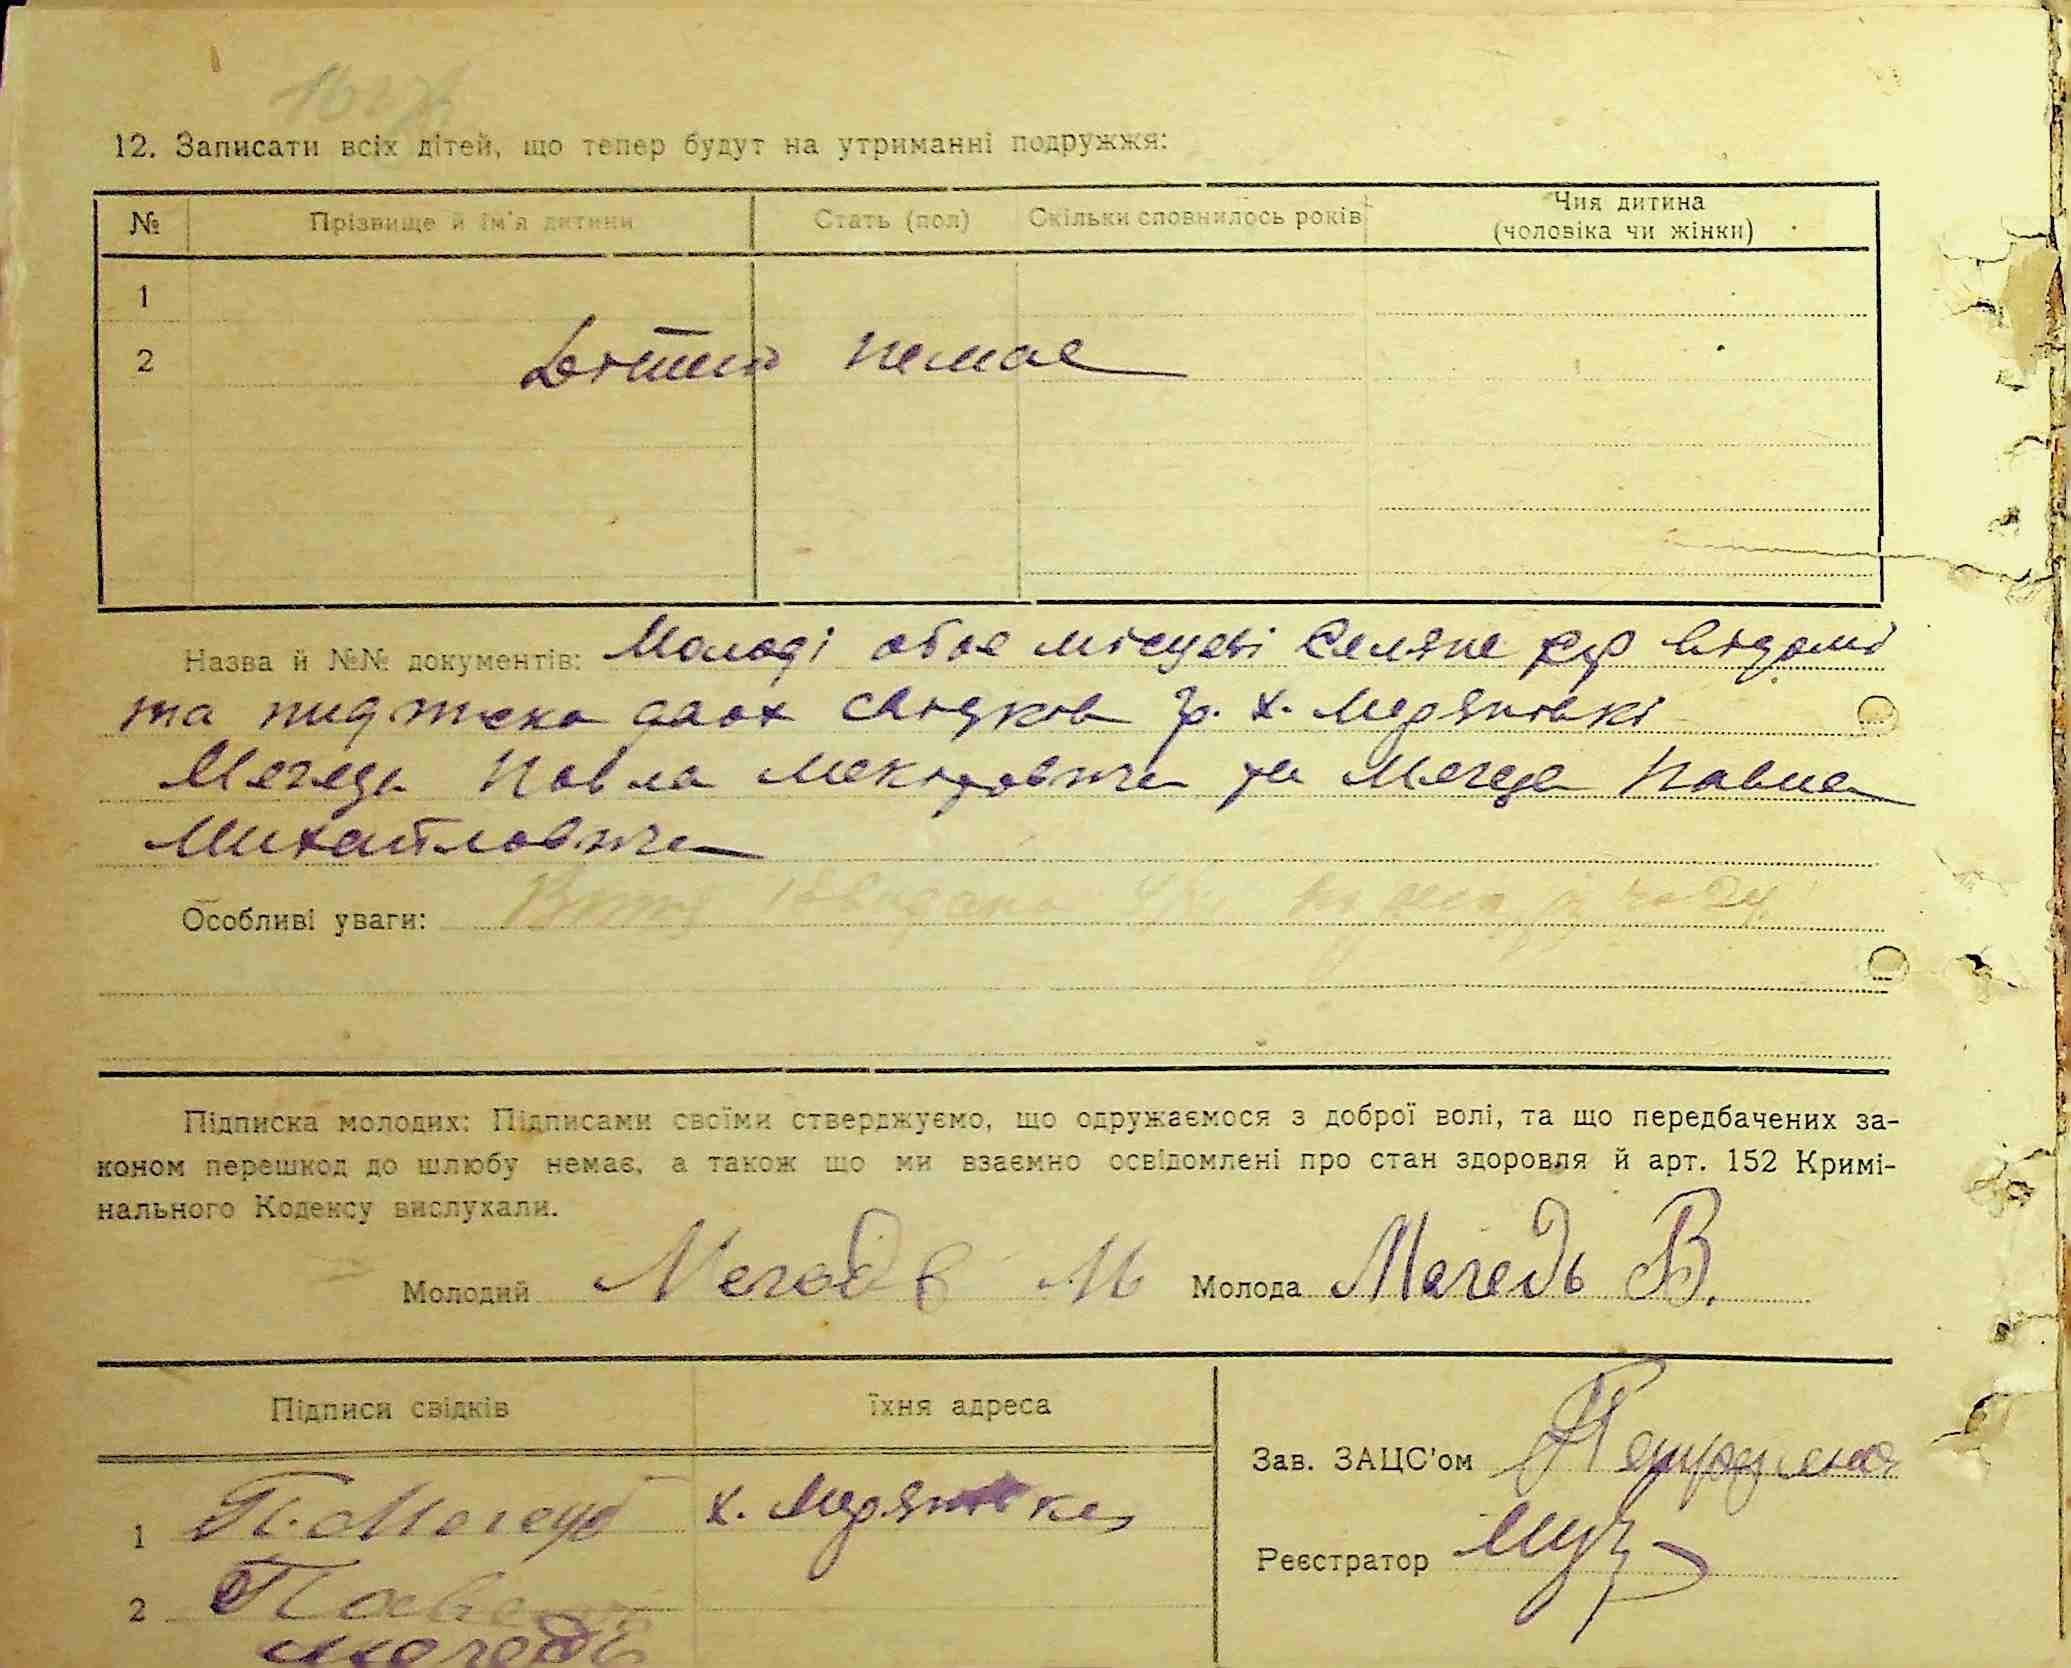 12. Записати всіх дітей, що тепер будут на утриманні подружжя:
№ Прізвище й ім'я дитини Стать (пол) Скільки сповнилось років Чия дитина
(чоловіка чи жінки)
1
2 Дітей немає
Назва й №№ документів: Молоді обоє місцеві селяне відомі
та двох свідков гр. х. Медянівкі
Мегедь Павла та Мегедя Павла
Михайловича
Особливі уваги:
Підписка молодих: Підписами своїми стверджуємо, що одружаємося з доброї волі, та що передбачених за-
коном перешкод до шлюбу немає, а також що ми взаємно освідомлені про стан здоровля й арт. 152 Кримі-
нального Кодексу вислухали.
Молодий Мегедь М Молода Мегедь В.
Підписи свідків їхня адреса
Зав. ЗАЦС'ом
1 П. Мегедь х. Медянівка
Реєстратор
2 Павел
Мегедь